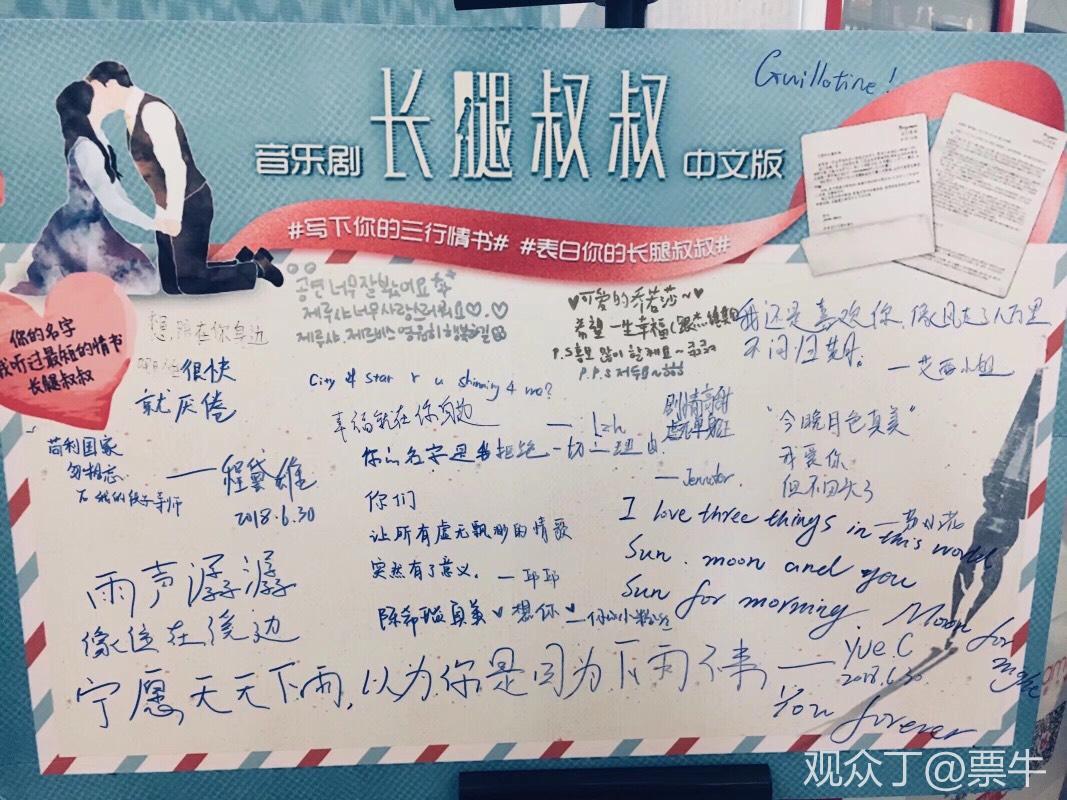 Guillotine!
音乐剧 长腿叔叔 中文版
#写下你的三行情书# #表白你的长腿叔叔#
你的名字
我听过最短的情书
长腿叔叔
想陪在你身边
很快
就厌倦
苟利国家
勿相忘
——程黛雄
2018.6.30
공연 너무 잘 봤어요
제루샤 너무 사랑스러워요♡.♡
제루샤 제르비스 영원히 행복하길
city of star r u shinning 4 me?
幸福就在你身边
—— Lzh
你的名字是我拒绝一切的理由.
——Jennifer.
你们
让所有虚无飘渺的情歌
突然有了意义. —邛邛
♥可爱的乔若莎~♥
希望一生幸福
P.S 홍보 많이 할게요~
P.P.S
我还是喜欢你,像风走了八万里
不问归期。
—艾西小姐
剧情高甜
虐死单身狂
“今晚月色真美”
我爱你
但不回头了
I love three things in this world
Sun. moon and you
Sun for morning. Moon for night
You forever
陈希瑞真美♥想你♥—你的小粉丝
雨声潺潺
像住在溪边
宁愿天天下雨,以为你是因为下雨不来
——yue.C
2018.6.30
观众丁@票牛